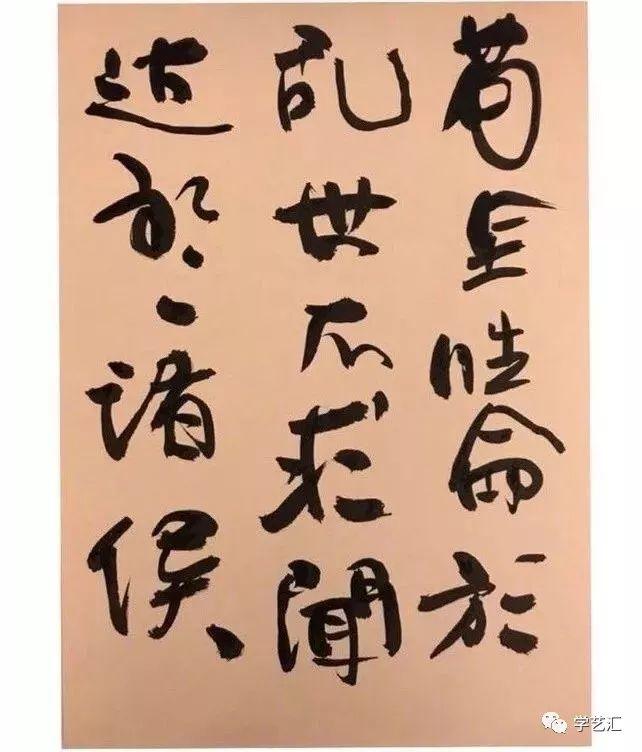 苟全性命於
乱世不求聞
达於诸侯
学艺汇